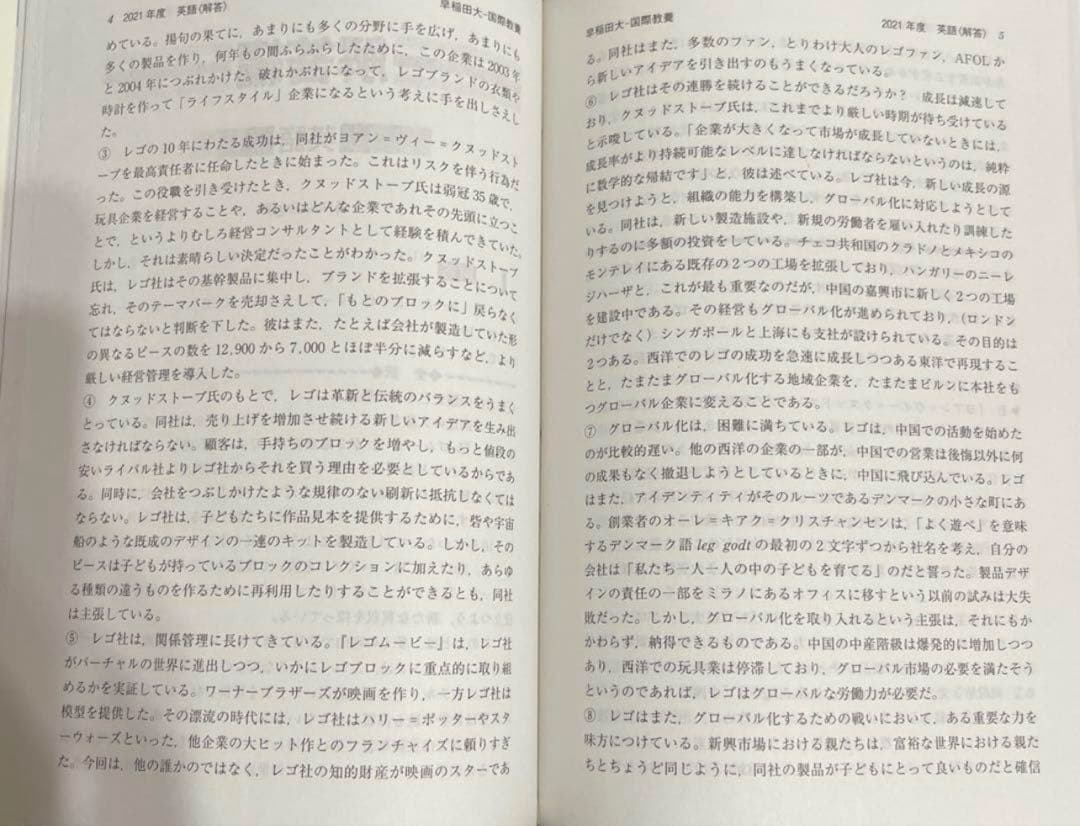 4 2021年度 英語〈解答〉
早稲田大-国際教養
めている。揚句の果てに，あまりにも多くの分野に手を広げ，あまりにも
多くの製品を作り，何年もの間ふらふらしたために，この企業は2003年
と2004年につぶれかけた。破れかぶれになって，レゴブランドの衣類や
時計を作って「ライフスタイル」企業になるという考えに手を出しさえし
た。
③ レゴの10年にわたる成功は，同社がヨアン=ヴィー=クヌッドスト
ープを最高責任者に任命したときに始まった。これはリスクを伴う行為だ
った。この役職を引き受けたとき，クヌッドストープ氏は弱冠35歳で，
玩具企業を経営することや，あるいはどんな企業であれその先頭に立つこ
とで，というよりむしろ経営コンサルタントとして経験を積んできていた。
しかし，それは素晴らしい決定だったことがわかった。クヌッドストープ
氏は，レゴ社はその基幹製品に集中し，ブランドを拡張することについて
忘れ，そのテーマパークを売却さえして，「もとのブロックに」戻らなく
てはならないと判断を下した。彼はまた，たとえば会社が製造していた形
の異なるピースの数を12,900から7,000とほぼ半分に減らすなど，より
厳しい経営管理を導入した。
④ クヌッドストープ氏のもとで，レゴは革新と伝統のバランスをうまく
とっている。同社は，売り上げを増加させ続ける新しいアイデアを生み出
さなければならない。顧客は，手持ちのブロックを増やし，もっと値段の
安いライバル社よりレゴ社からそれを買う理由を必要としているからであ
る。同時に，会社をつぶしかけたような規律のない刷新に抵抗しなくては
ならない。レゴ社は，子どもたちに作品見本を提供するために，砦や宇宙
船のような既成のデザインの一連のキットを製造している。しかし，その
ピースは子どもが持っているブロックのコレクションに加えたり，あらゆ
る種類の違うものを作るために再利用したりすることができるとも，同社
は主張している。
⑤ レゴ社は，関係管理に長けてきている。『レゴムービー』は，レゴ社
がバーチャルの世界に進出しつつ，いかにレゴブロックに重点的に取り組
めるかを実証している。ワーナーブラザーズが映画を作り，一方レゴ社は
模型を提供した。その漂流の時代には，レゴ社はハリー=ポッターやスタ
ーウォーズといった，他企業の大ヒット作とのフランチャイズに頼りすぎ
た。今回は，他の誰かのではなく，レゴ社の知的財産が映画のスターであ
早稲田大-国際教養
2021年度 英語〈解答〉 5
る。同社はまた，多数のファン，とりわけ大人のレゴファン，AFOLか
ら新しいアイデアを引き出すのもうまくなっている。
⑥ レゴ社はその連勝を続けることができるだろうか？ 成長は減速して
おり，クヌッドストープ氏は，これまでより厳しい時期が待ち受けている
と示唆している。「企業が大きくなって市場が成長していないときには，
成長率がより持続可能なレベルに達しなければならないというのは，純粋
に数学的な帰結です」と，彼は述べている。レゴ社は今，新しい成長の源
を見つけようと，組織の能力を構築し，グローバル化に対応しようとして
いる。同社は，新しい製造施設や，新規の労働者を雇い入れたり訓練した
りするのに多額の投資をしている。チェコ共和国のクラドノとメキシコの
モンテレイにある既存の2つの工場を拡張しており，ハンガリーのニーレ
ジハーザと，これが最も重要なのだが，中国の嘉興市に新しく2つの工場
を建設中である。その経営もグローバル化が進められており，（ロンドン
だけでなく）シンガポールと上海にも支社が設けられている。その目的は
2つある。西洋でのレゴの成功を急速に成長しつつある東洋で再現するこ
とと，たまたまグローバル化する地域企業を，たまたまビルンに本社をも
つグローバル企業に変えることである。
⑦ グローバル化は，困難に満ちている。レゴは，中国での活動を始めた
のが比較的遅い。他の西洋の企業の一部が，中国での営業は後悔以外に何
の成果もなく撤退しようとしているときに，中国に飛び込んでいる。レゴ
はまた，アイデンティティがそのルーツであるデンマークの小さな町にあ
る。創業者のオーレ=キアク=クリスチャンセンは，「よく遊べ」を意味
するデンマーク語leg godtの最初の2文字ずつから社名を考え，自分の
会社は「私たち一人一人の中の子どもを育てる」のだと誓った。製品デザ
インの責任の一部をミラノにあるオフィスに移すという以前の試みは大失
敗だった。しかし，グローバル化を取り入れるという主張は，それにもか
かわらず，納得できるものである。中国の中産階級は爆発的に増加しつつ
あり，西洋での玩具業は停滞しており，グローバル市場の必要を満たそう
というのであれば，レゴはグローバルな労働力が必要だ。
⑧ レゴはまた，グローバル化するための戦いにおいて，ある重要な力を
味方につけている。新興市場における親たちは，富裕な世界における親た
ちとちょうど同じように，同社の製品が子どもにとって良いものだと確信